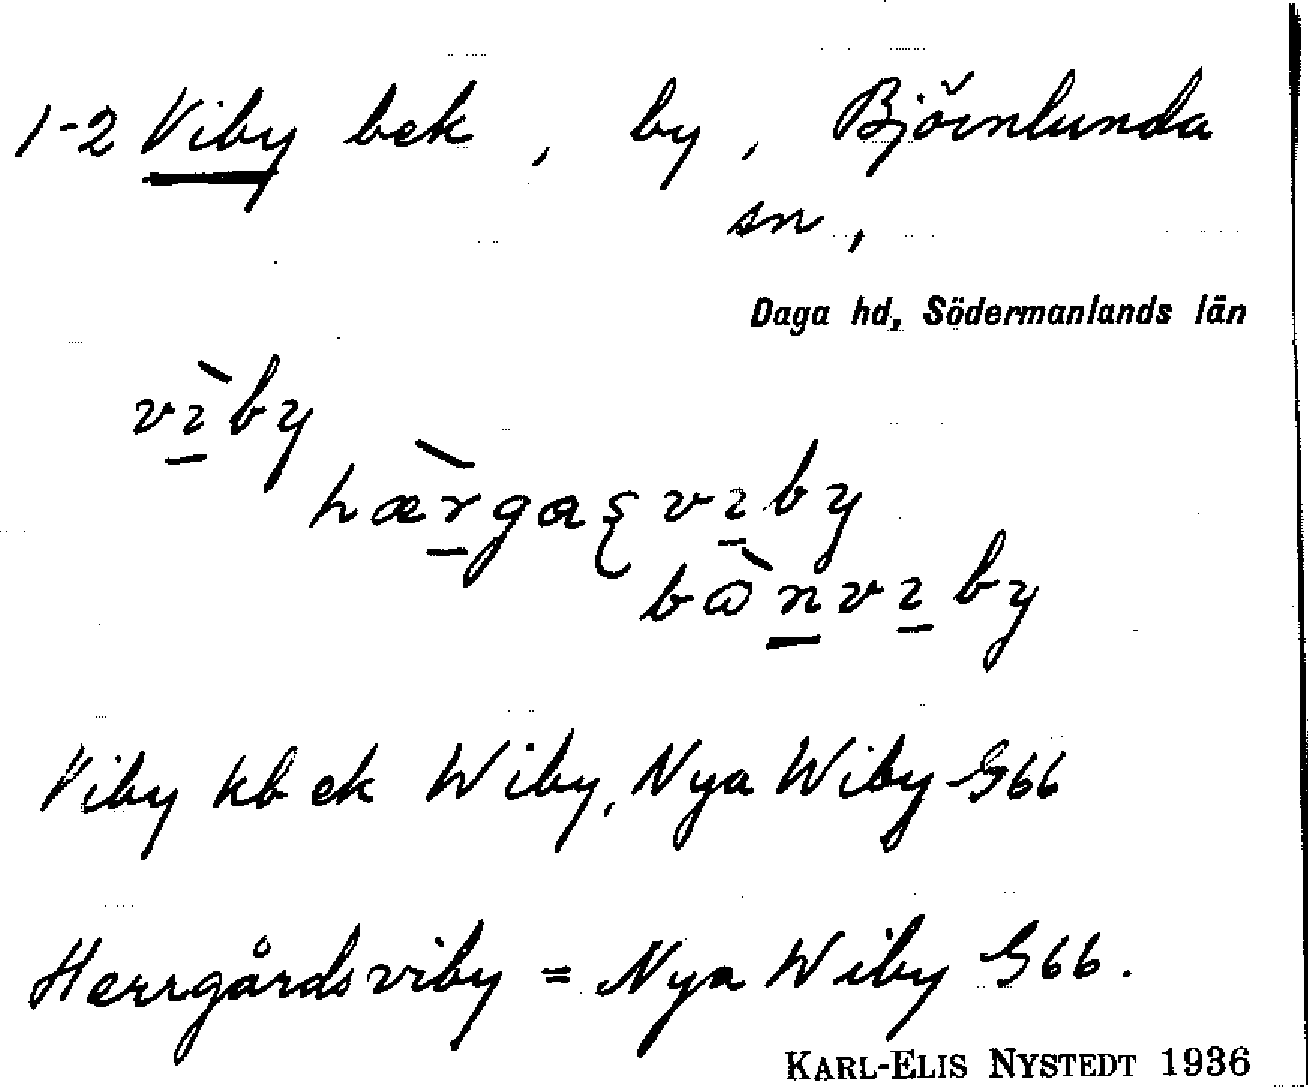 1-2 Viby bek, by, Björnlunda
sn,
Daga hd, Södermanlands län
vı̀by
hær̀gaşvıby
bɷ̀nvıby
Viby kb ek Wiby, Nya Wiby G66
Herrgårdsviby = Nya Wiby G66.
KARL-ELIS NYSTEDT 1936